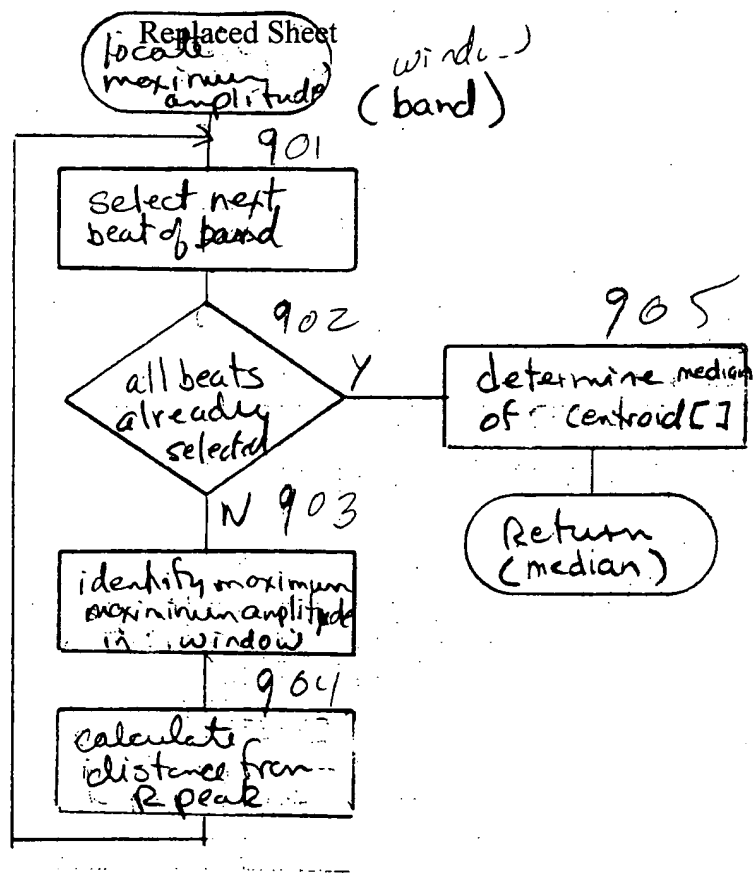 Replaced Sheet
locate
maximum
amplitude
(band)
901
select next
beat of band
902
all beats
already
selected
Y
905
determine median
of centroid[]
Return
(median)
N 903
identify maximum
amplitude
in window
904
calculate
distance from
R peak